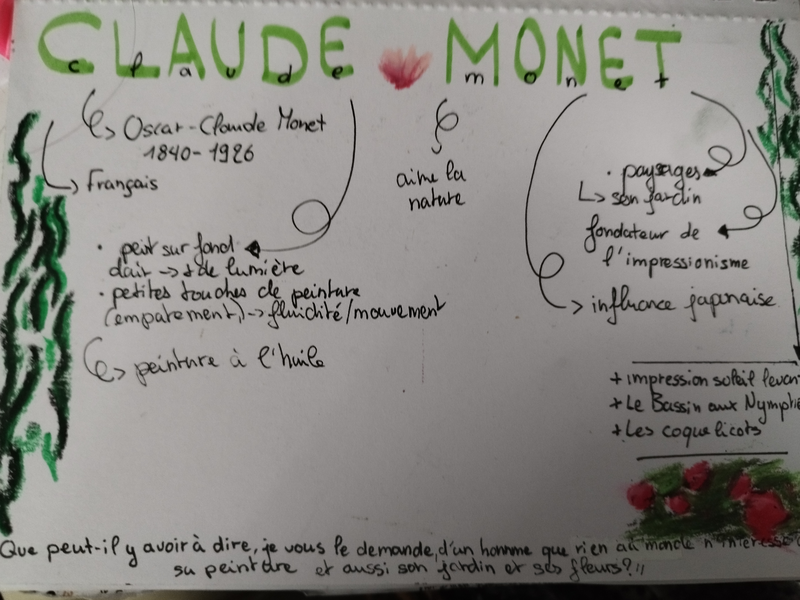 CLAUDE MONET
claude monet
Oscar-Claude Monet
1840-1926
Français
aime la
nature
• paysages
son jardin
fondateur de
l'impressionisme
influence japonaise
• peint sur fond
clair → + de lumière
• petites touches de peinture
(empatement) → fluidité/mouvement
peinture à l'huile
+ impression soleil levan
+ Le Bassin aux Nymphé
+ Les coquelicots
Que peut-il y avoir à dire, je vous le demande, d'un homme que rien au monde n'interesse
sa peintdre et aussi son jardin et ses fleurs?!!